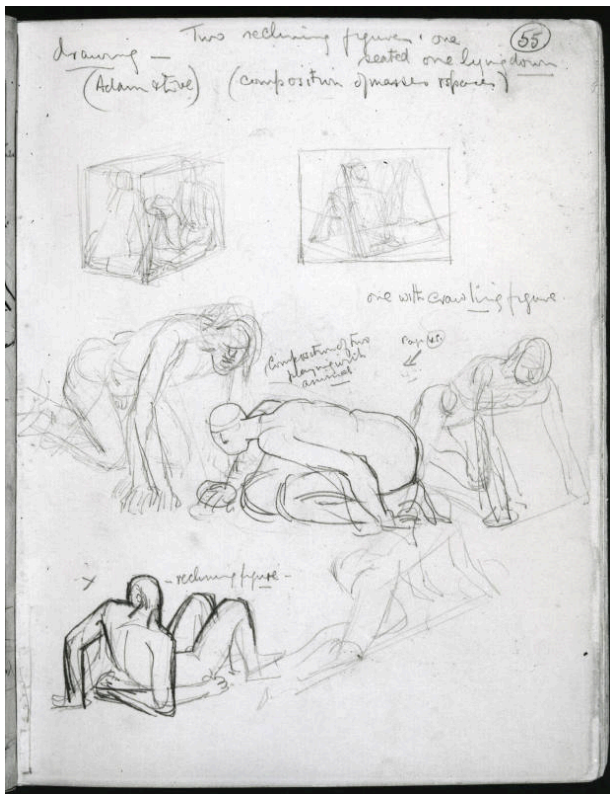 Two reclining figures, one
55
drawing — seated one lying down.
(Adam & Eve) (composition of masses & spaces)
one with crawling figure.
Composition of two
playing with
animal
Page
x – reclining figure –